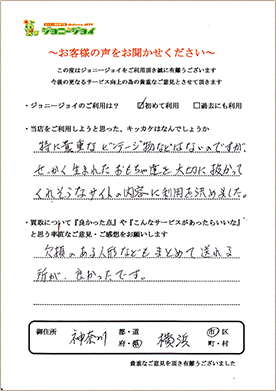 ジョニージョイ
～お客様の声をお聞かせください～
この度はジョニージョイをご利用頂き誠に有難うございます
今後の更なるサービス向上の為の貴重なご意見とさせて頂きます
・ジョニージョイのご利用は？ ☑初めて利用 □過去にも利用
・当店をご利用しようと思った、キッカケはなんでしょうか
特に貴重なビンテージ物などはないのですが、
せっかく生まれたおもちゃ達を大切に扱かって
くれそうなサイトの内容に利用を決めました。
・買取について『良かった点』や『こんなサービスがあったらいいな』
と思う率直なご意見・ご感想をお願いします
欠損のある人形などもまとめて送れる
所が、良かったです。
御住所 神奈川 都・道 府・県 横浜 市・区 町・村
貴重なご意見を頂き有難うございました